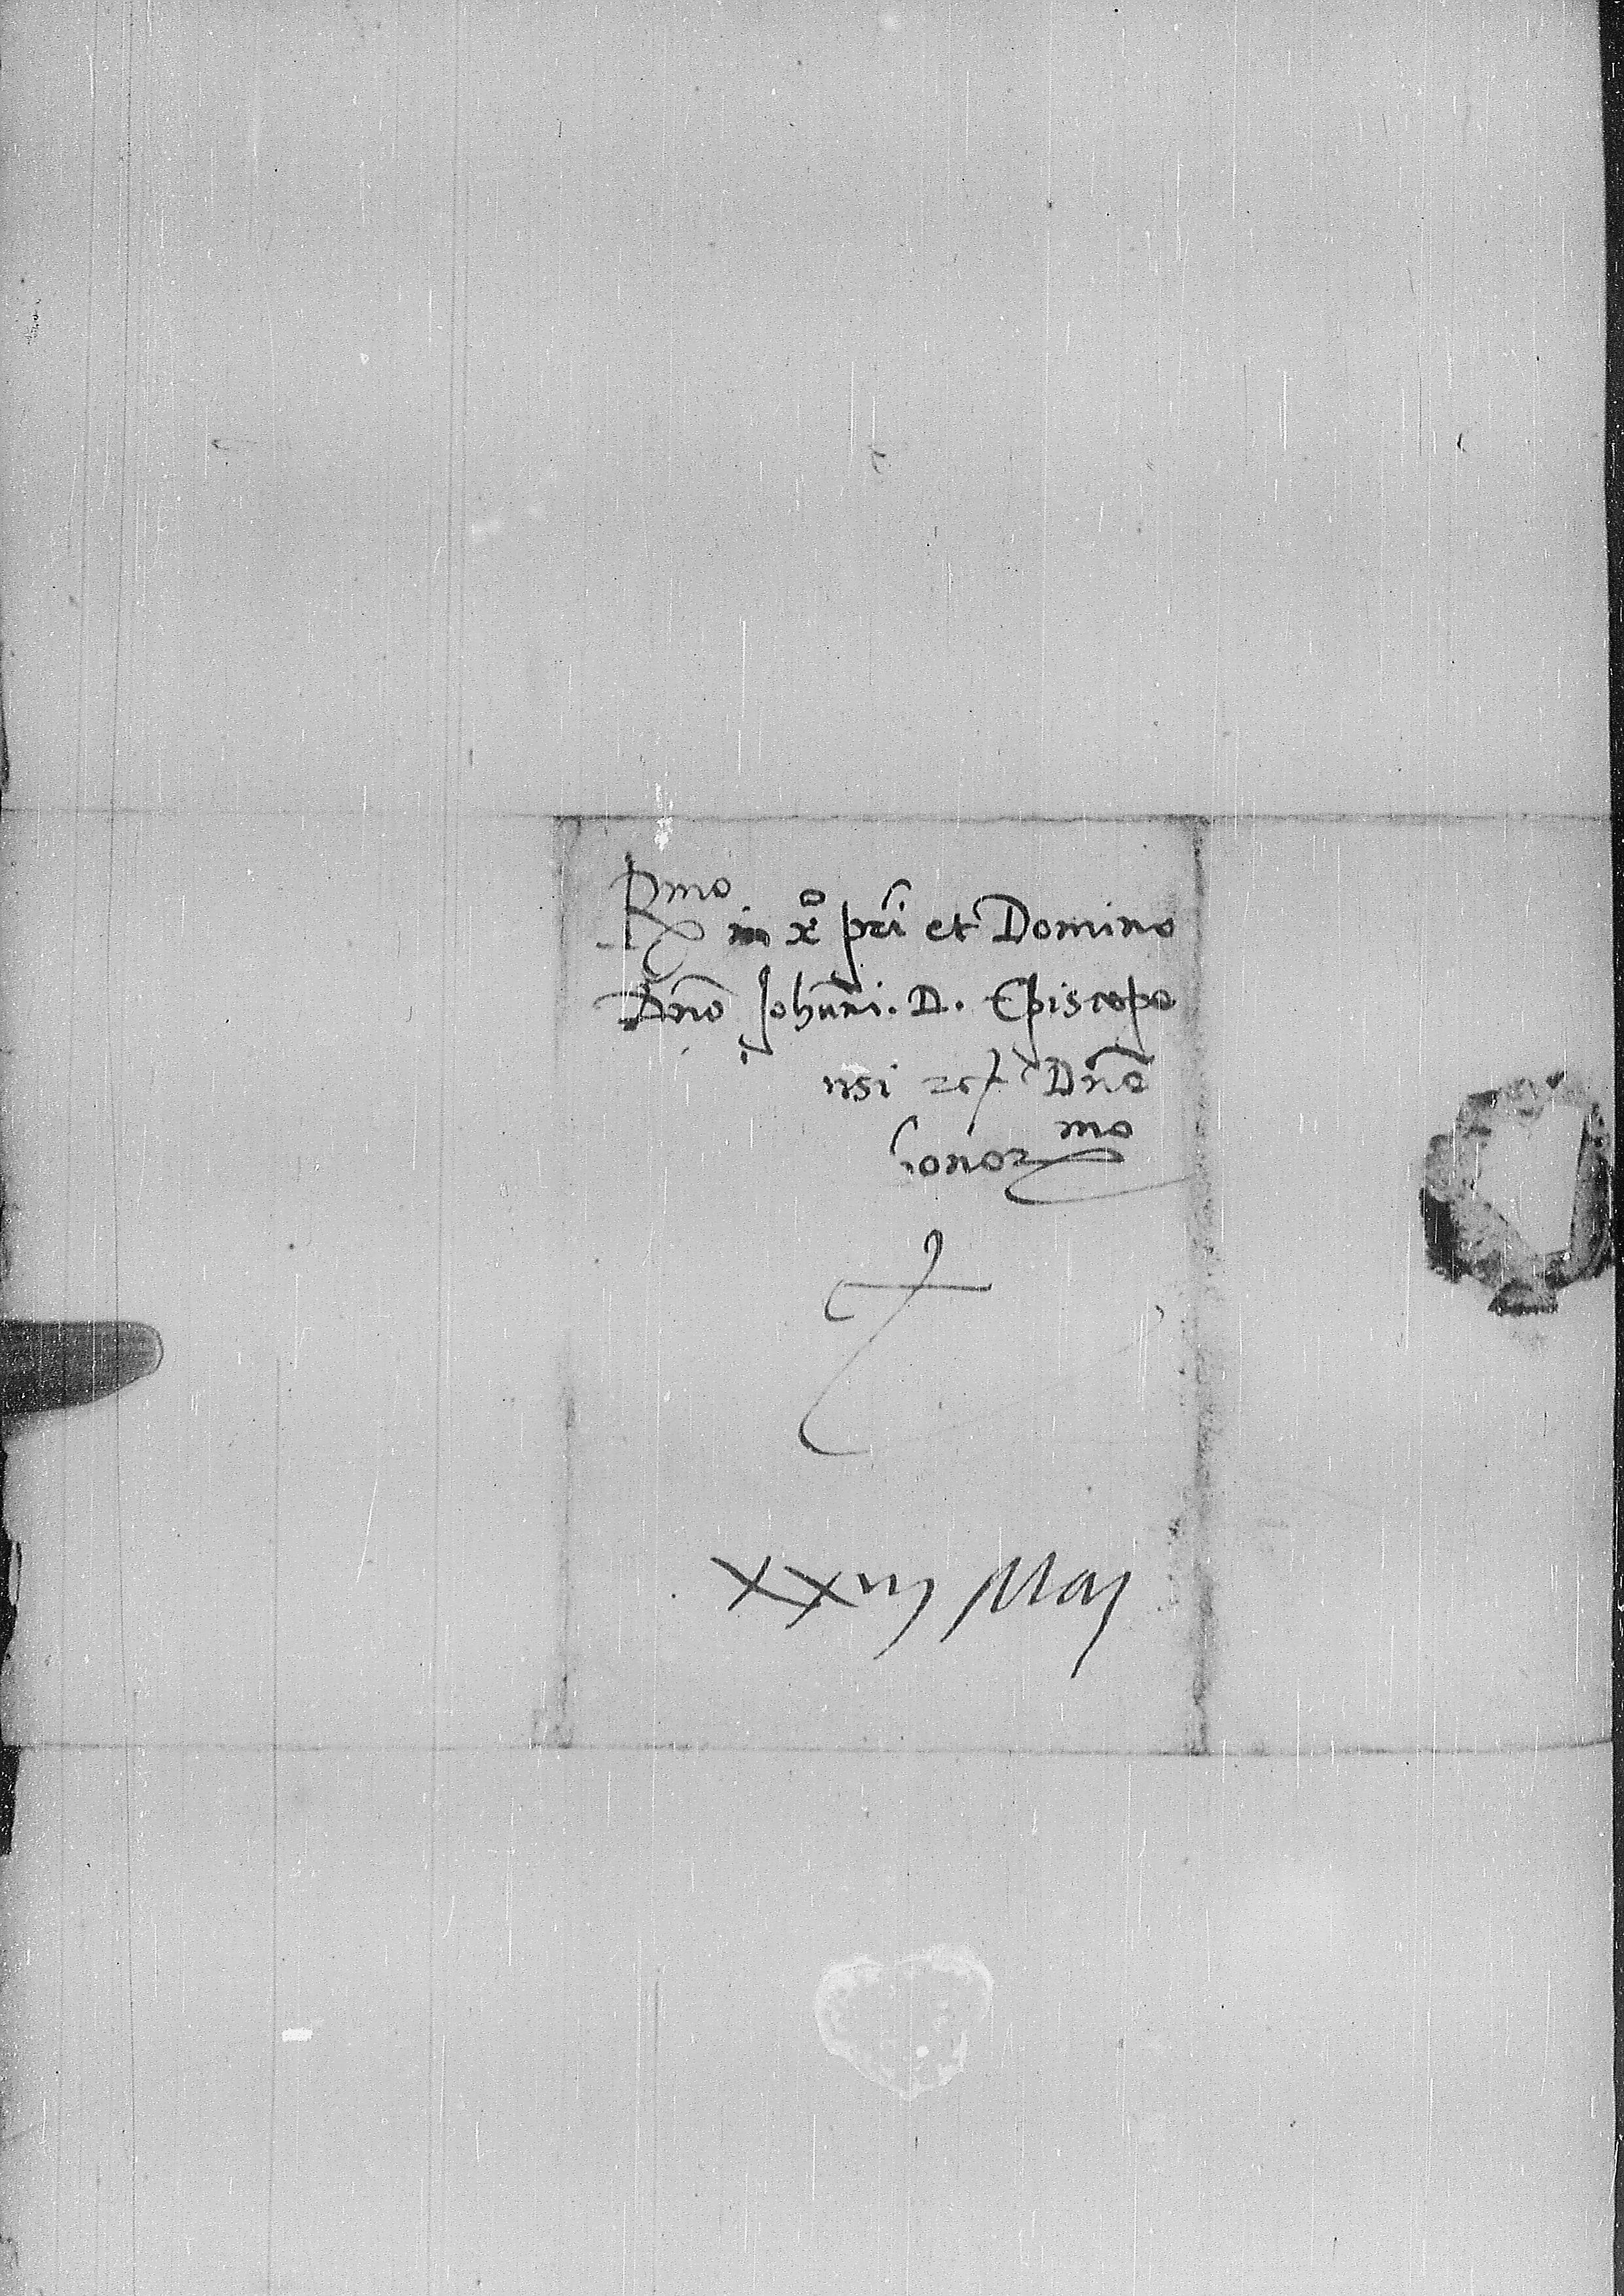 Rmo in xo pri et Domino
Dno Johanni. D. Episcopo
nsi etc Dno
honormo
xxvij Maij